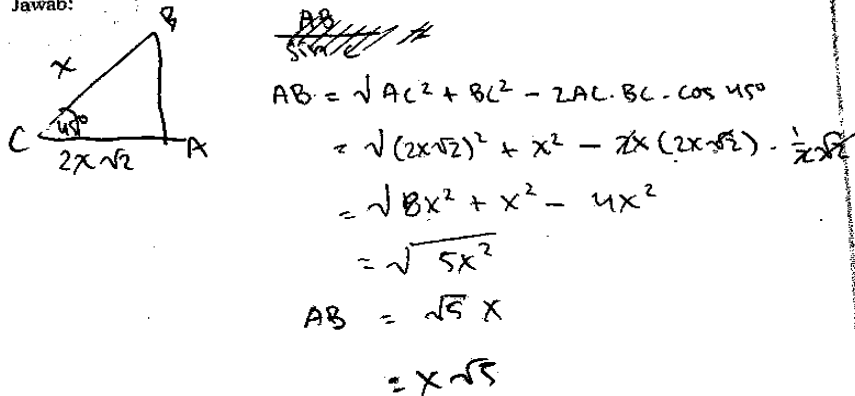 Jawab:
B
x
C 45° A
2x√2
AB
AB = √AC² + BC² - 2AC.BC.cos 45°
= √(2x√2)² + x² - 2x(2x√2) . 1/2√2
= √8x² + x² - 4x²
= √5x²
AB = √5 x
= x√5